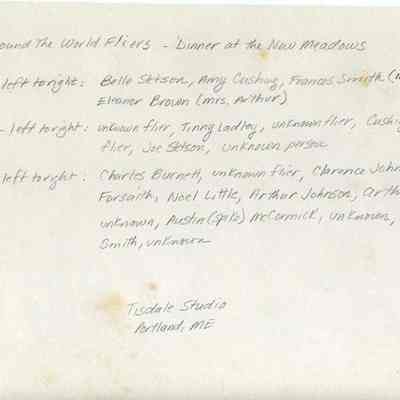 ound The World Fliers - Dinner at the New Meadows
left to right: Belle Stetson, Amy Cushing, Frances Smith
Eleanor Brown (Mrs. Arthur)
- left to right: unknown flier, Tinny Ladley, unknown flier, Cushi
flier, Joe Stetson, unknown person
left to right: Charles Burnett, unknown flier, Clarence John
Forsaith, Noel Little, Arthur Johnson, arth
unknown, Austin (Spike) McCormick, unknown,
Smith, unknown
Tisdale Studio
Portland, ME